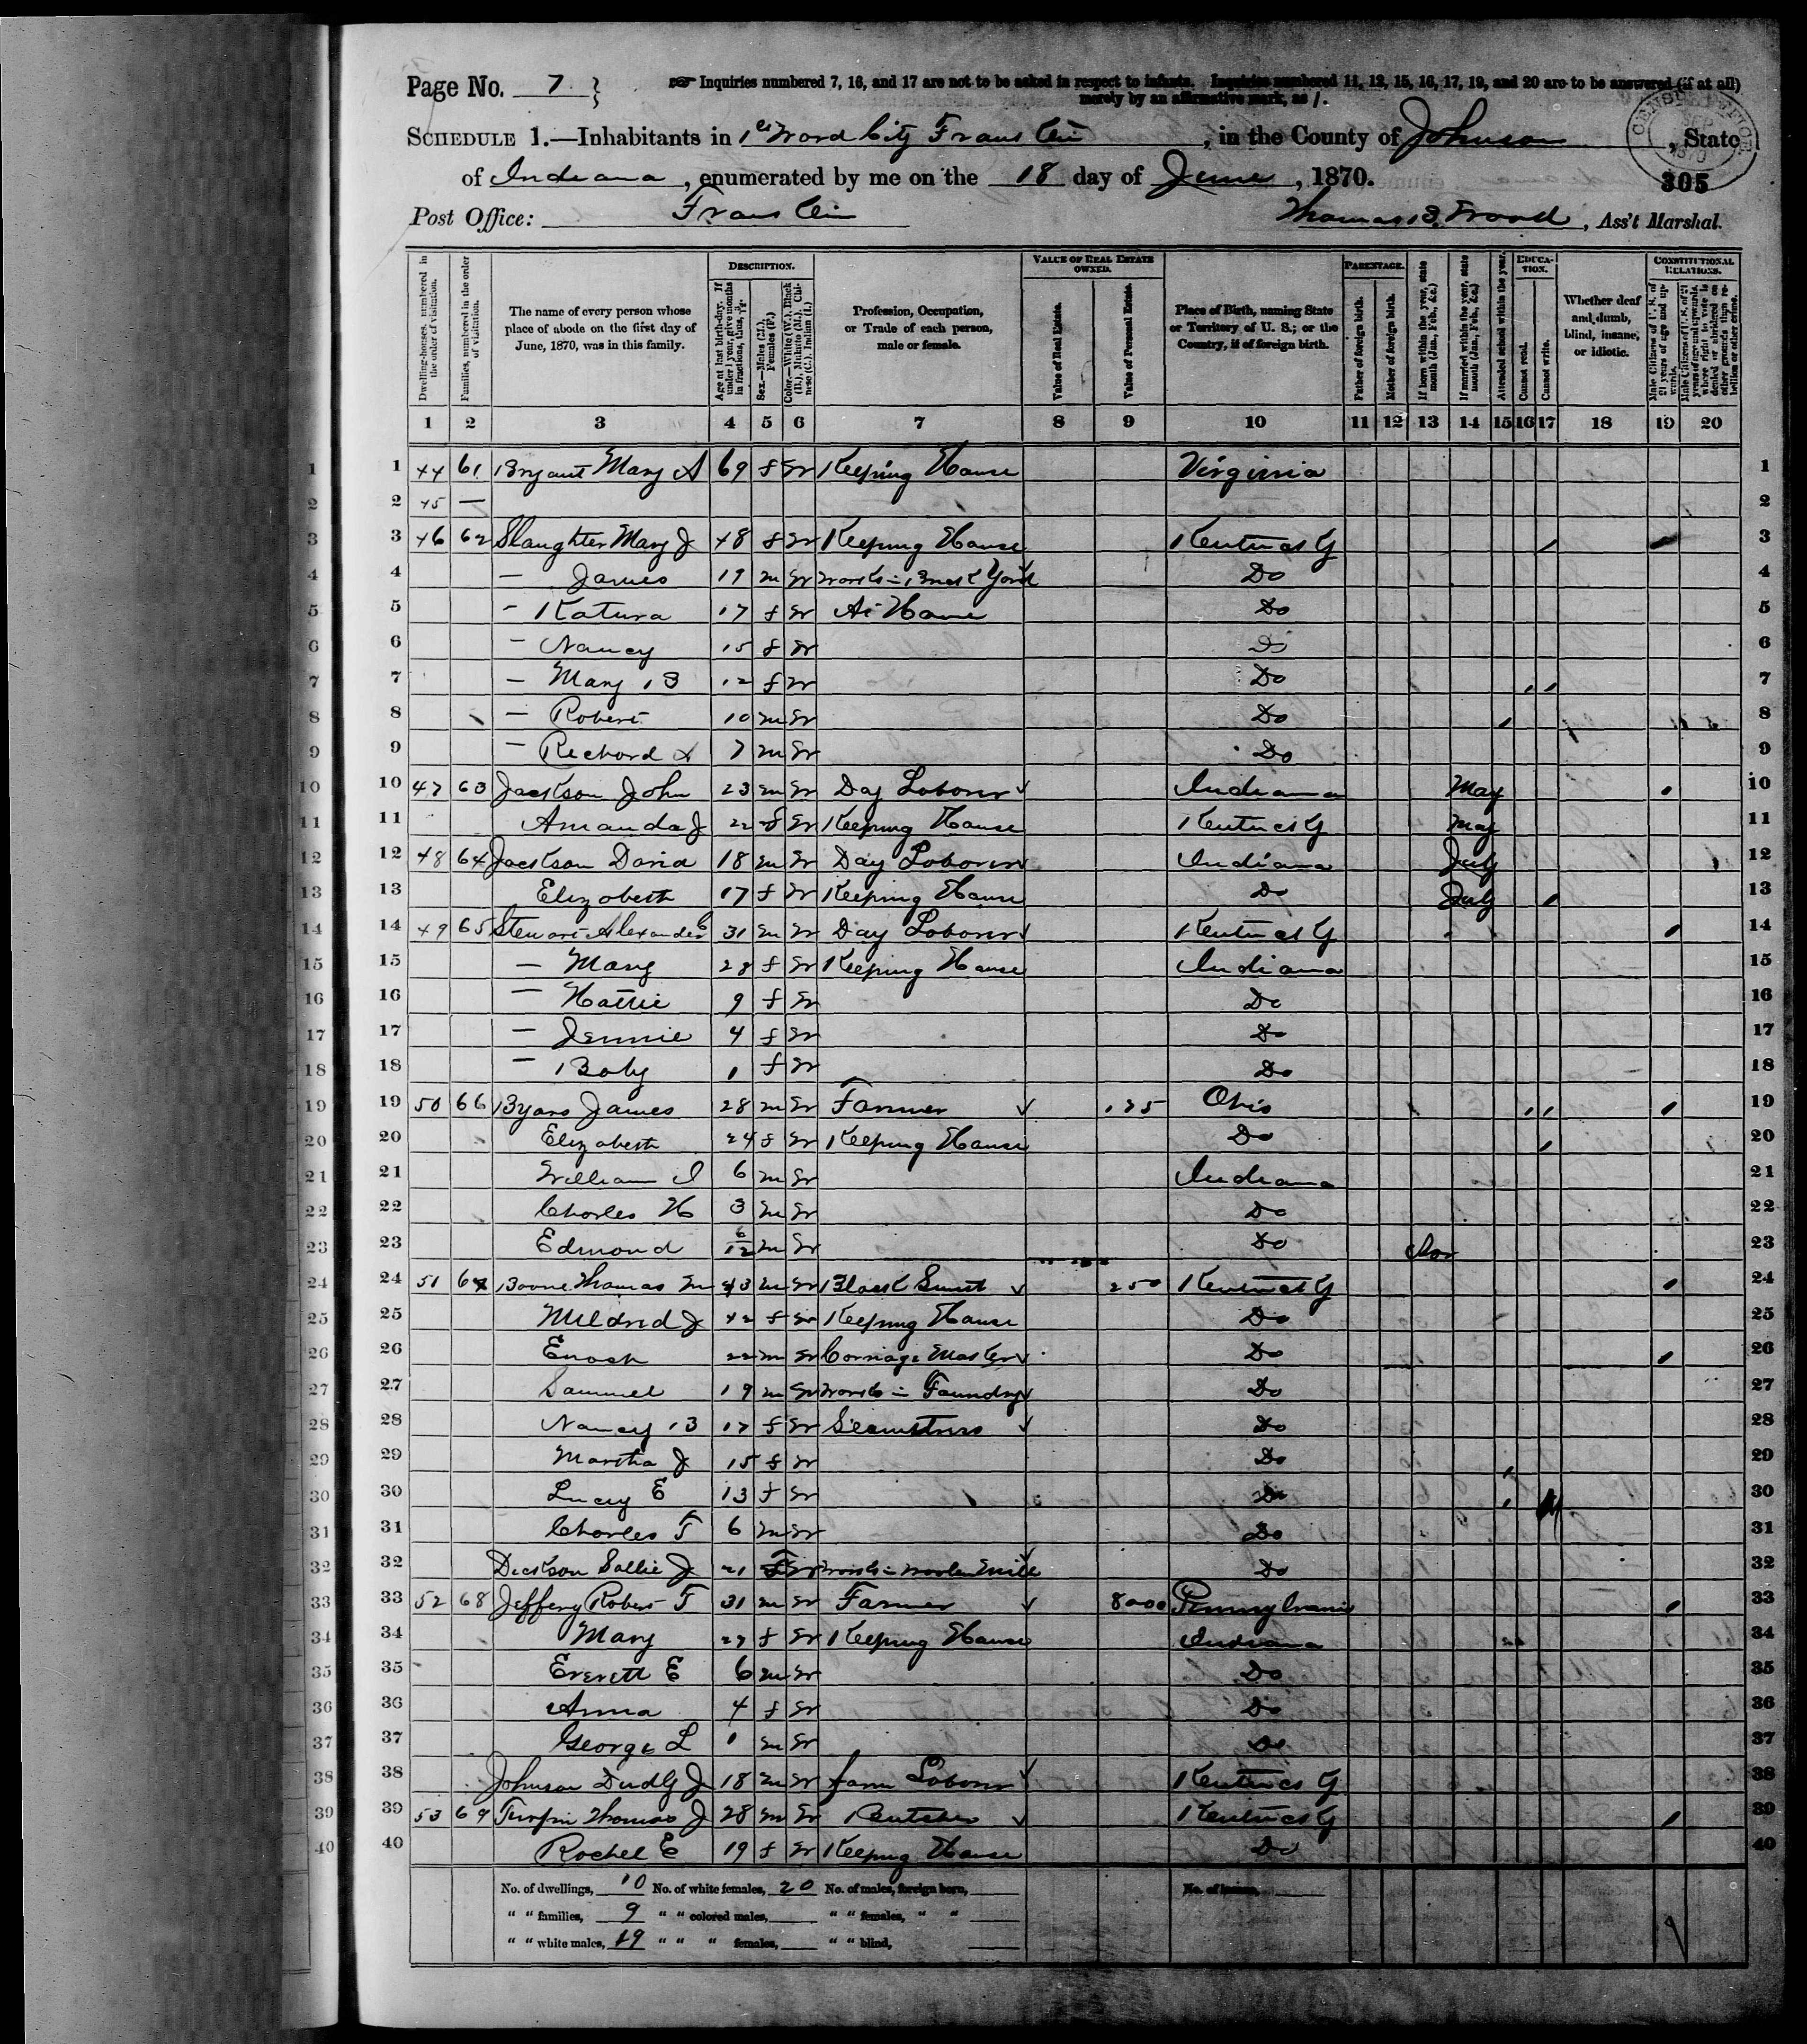 Page No. 7
Inquiries numbered 7, 16, and 17 are not to be asked in respect to infants. Inquiries numbered 11, 12, 15, 16, 17, 19, and 20 are to be answered (if at all)
merely by an affirmative mark, as /.
SCHEDULE 1.—Inhabitants in 1st Ward City Franklin, in the County of Johnson, State
of Indiana, enumerated by me on the 18 day of June, 1870.
305
Post Office: Franklin Thomas B. Wood, Ass't Marshal.
Dwelling-houses, numbered in the order of visitation.
Families, numbered in the order of visitation.
The name of every person whose place of abode on the first day of June, 1870, was in this family.
DESCRIPTION.
Sex.—Males (M.), Females (F.)
Profession, Occupation, or Trade of each person, male or female.
VALUE OF REAL ESTATE OWNED.
Value of Real Estate.
Value of Personal Estate.
Place of Birth, naming State or Territory of U. S.; or the Country, if of foreign birth.
PARENTAGE.
Father of foreign birth.
Mother of foreign birth.
If born within the year, state month (Jan., Feb., &c.)
If married within the year, state month (Jan., Feb., &c.)
Attended school within the year.
EDUCATION.
Cannot read.
Cannot write.
Whether deaf and dumb, blind, insane, or idiotic.
CONSTITUTIONAL RELATIONS.
1 2 3 4 5 6 7 8 9 10 11 12 13 14 15 16 17 18 19 20
1 44 61 Bryant Mary A 69 f W Keeping House Virginia 1
2 45 — 2
3 46 62 Slaughter Mary J 48 f W Keeping House Kentucky / 3
4 — James 19 m W Works in Brick Yard Do 4
5 — Katura 17 f W At Home Do 5
6 — Nancy 15 f W Do 6
7 — Mary B 12 f W Do / / 7
8 — Robert 10 m W Do / 8
9 — Richard 7 m W Do 9
10 47 63 Jackson John 23 m W Day Laborer Indiana May / 10
11 Amanda J 22 f W Keeping House Kentucky May 11
12 48 64 Jackson David 18 m W Day Laborer Indiana July 12
13 Elizabeth 17 f W Keeping House Do July / 13
14 49 65 Stewart Alexander 31 m W Day Laborer Kentucky / 14
15 — Mary 28 f W Keeping House Indiana 15
16 — Hattie 9 f W Do 16
17 — Jennie 4 f W Do 17
18 — Baby 1 f W Do 18
19 50 66 Byars James 28 m W Farmer 125 Ohio / / / 19
20 Elizabeth 24 f W Keeping House Do / 20
21 William 6 m W Indiana 21
22 Charles H 3 m W Do 22
23 Edmond 6/12 m W Do Nov 23
24 51 67 Boone Thomas M 43 m W Black Smith 250 Kentucky / 24
25 Mildred J 42 f W Keeping House Do 25
26 Enoch 22 m W Carriage Maker Do / 26
27 Sammuel 19 m W Works in Foundry Do 27
28 Nancy B 17 f W Seamstress Do 28
29 Martha J 15 f W Do / 29
30 Lucy E 13 f W Do / 30
31 Charles T 6 m W Do 31
32 Dickson Sallie J 21 F W Works in Woolen Mill Do 32
33 52 68 Jeffery Robert T 31 m W Farmer 8000 Pennsylvania / 33
34 Mary 27 f W Keeping House Indiana 34
35 Everett E 6 m W Do 35
36 Anna 4 f W Do 36
37 George L 1 m W Do 37
38 Johnson Dudly J 18 m W farm Laborer Kentucky 38
39 53 69 Turpin Thomas J 28 m W Butcher Kentucky / 39
40 Rachel E 19 f W Keeping House Do 40
No. of dwellings, 10 No. of white females, 20 No. of males, foreign born,
" " families, 9 " " colored males, " " females, " "
" " white males, 19 " " " females, " " blind,